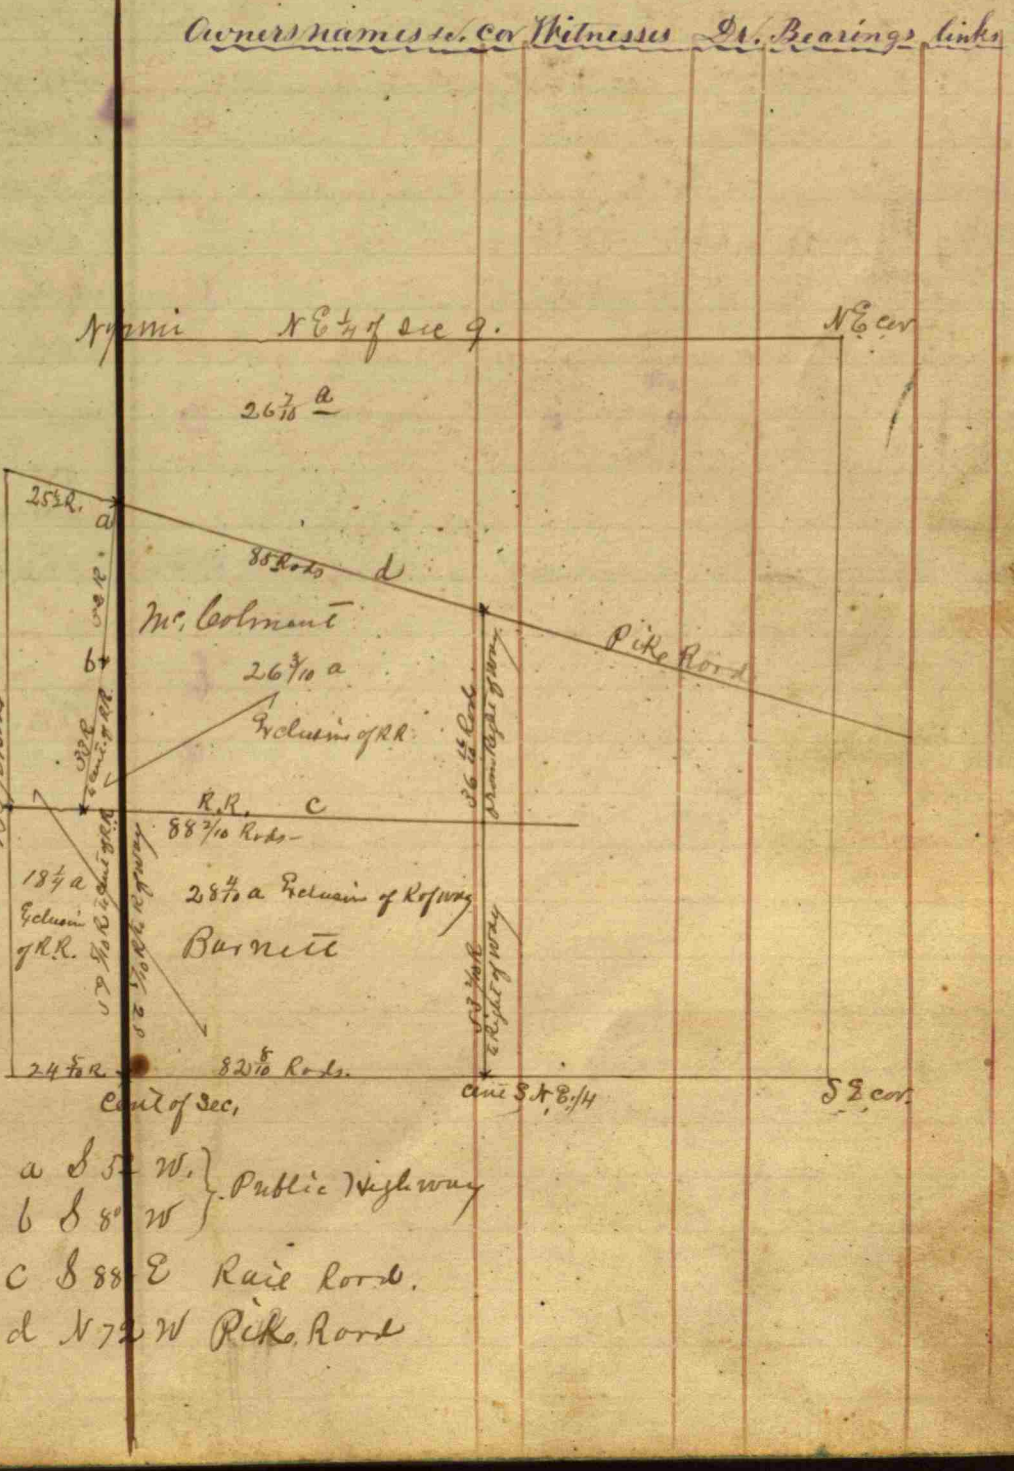 Owners names & cor Witnesses Dr. Bearings links
N E 1/4 of Sec 9.
N E cor
26 7/10 a
25 1/2 R.
a
85 Rods d
Mc. Colment
b
26 3/10 a
Pike Rord
Exclusin of RR
33 R
36 Rods
from Right of way
R.R. c
88 2/10 Rods
18 1/4 a
Exclusin
of R.R.
28 4/10 a Exclusin of R of way
Barnett
Right of way
24 5/10 R.
82 8/10 Rods.
Cent of Sec,
S N E 1/4
S E cor.
a S 52 W.
b S 8° W
Public Highway
c S 88 E Rail Rord.
d N 72 W Pike Rord